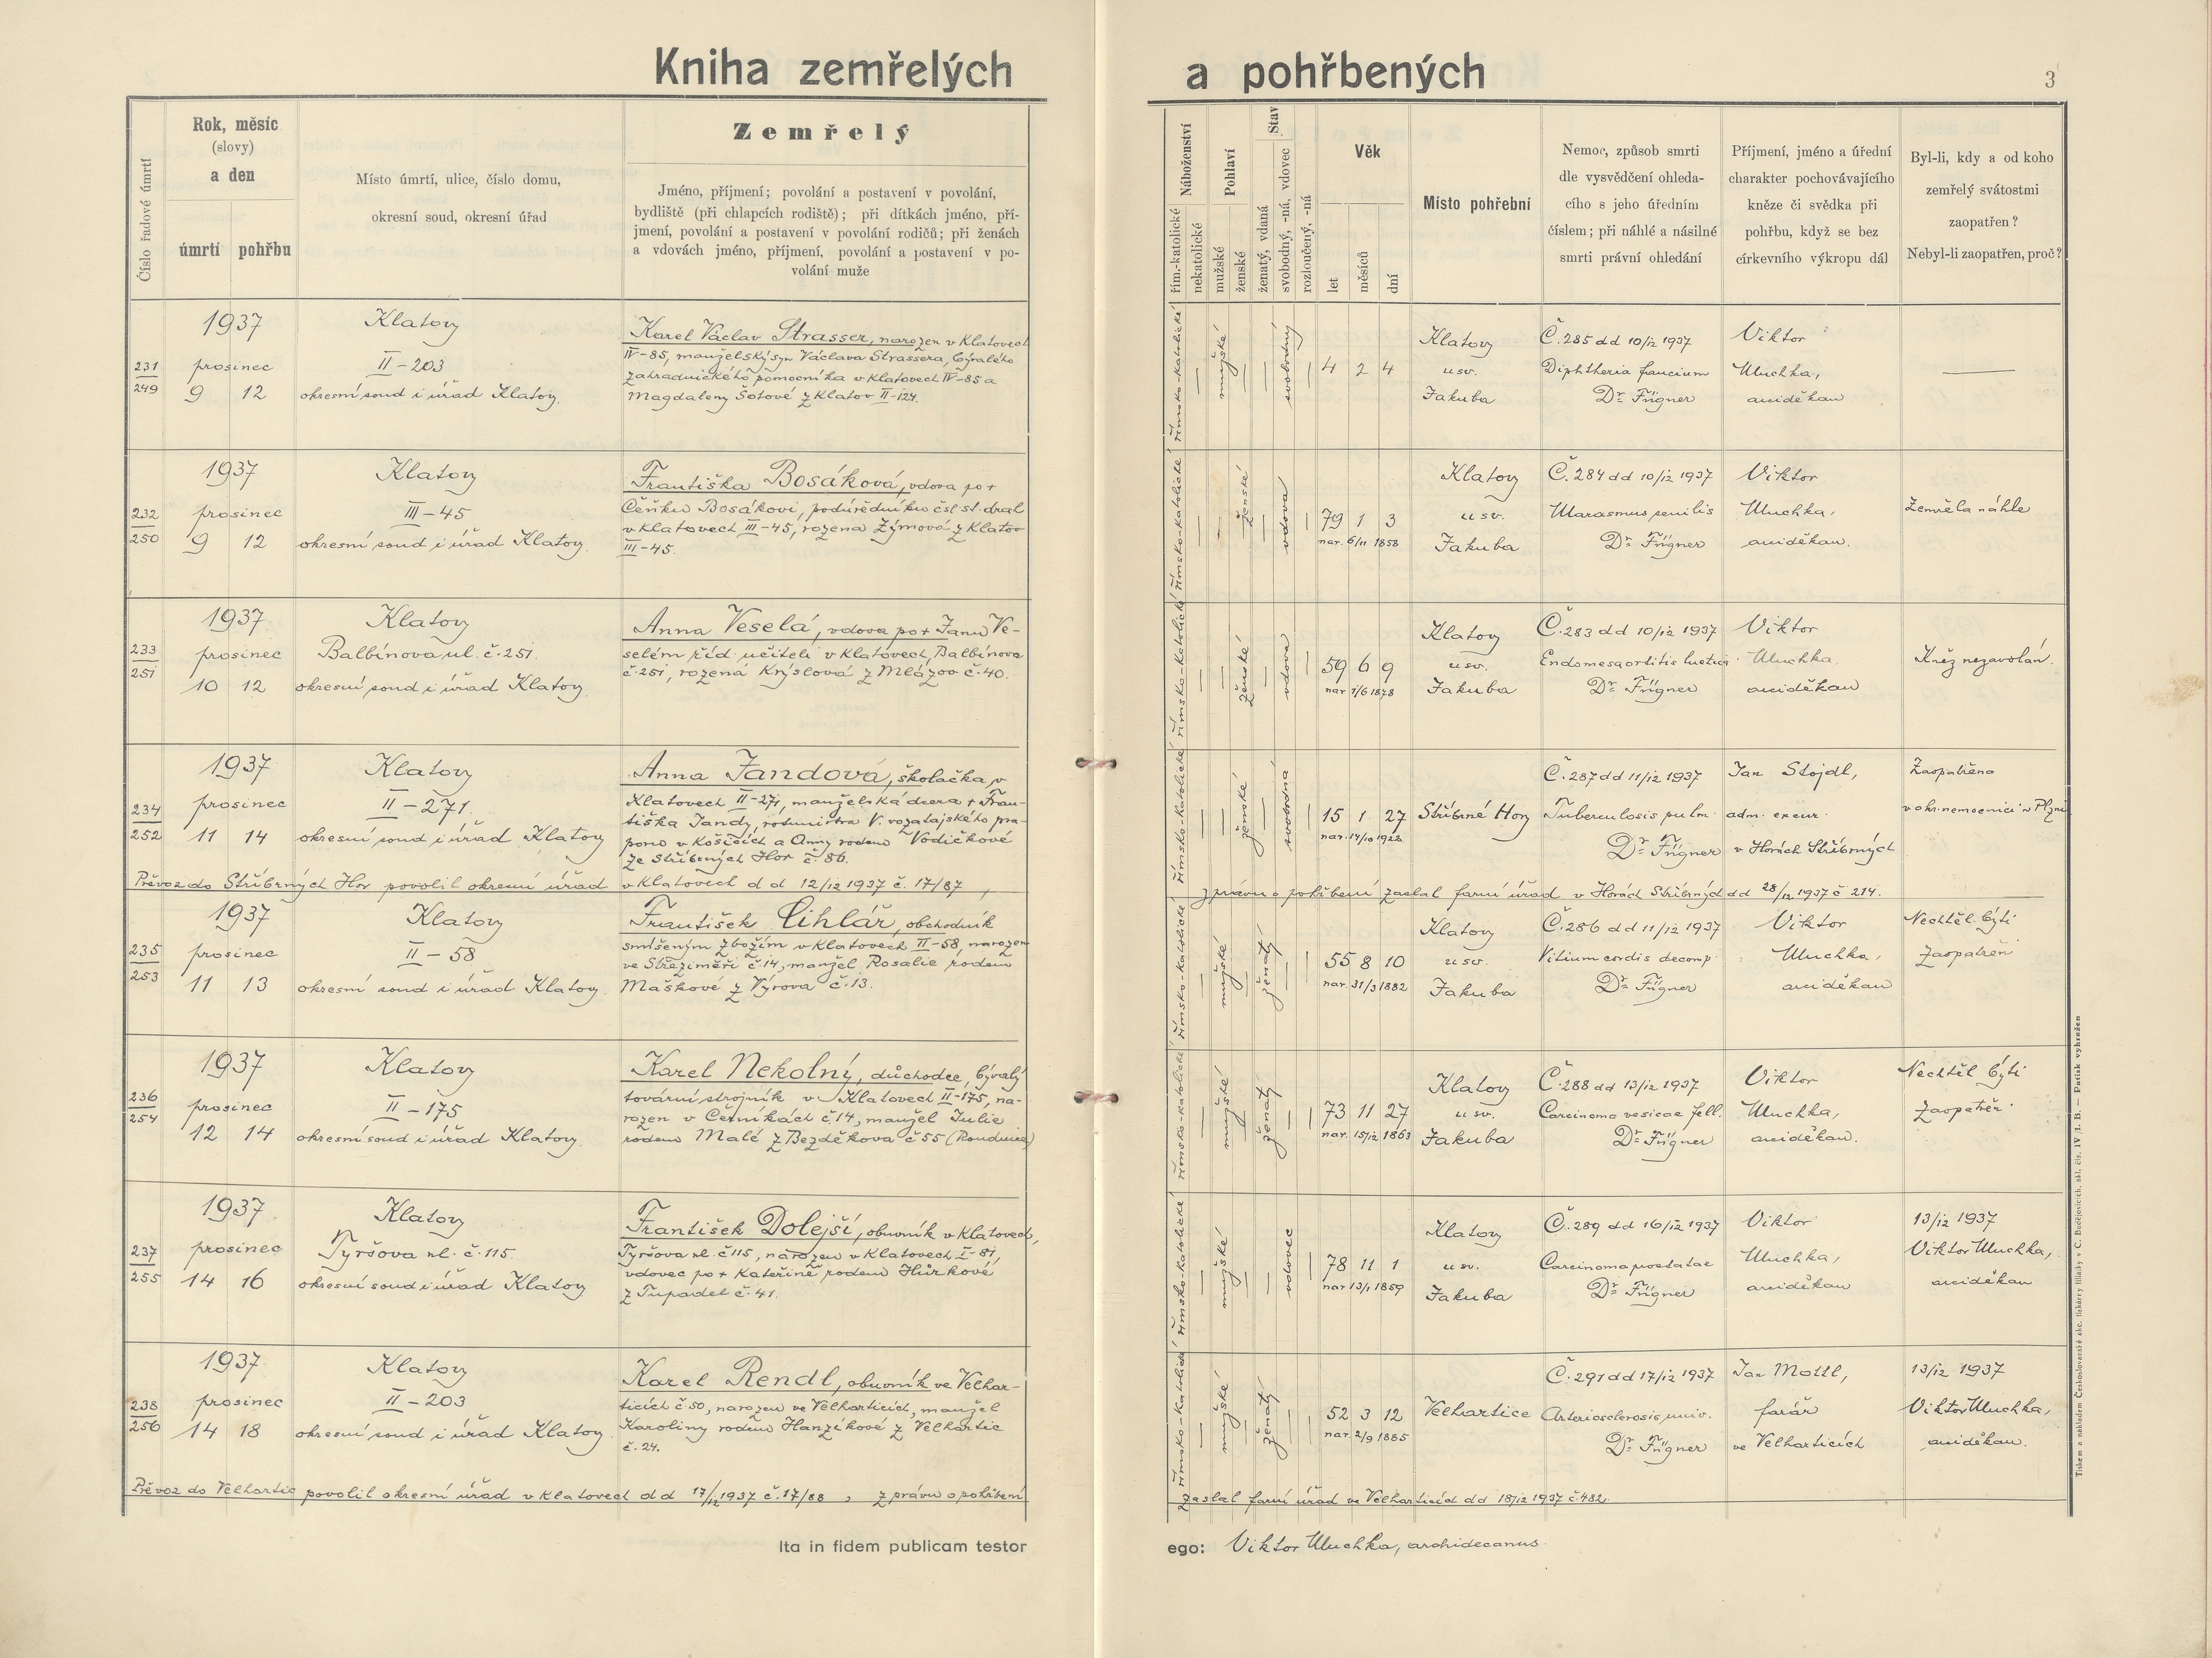 Kniha zemřelých a pohřbených
3
Číslo řadové úmrtí
Rok, měsíc
(slovy)
a den
úmrtí pohřbu
Místo úmrtí, ulice, číslo domu,
okresní soud, okresní úřad
Zemřelý
Jméno, příjmení; povolání a postavení v povolání,
bydliště (při chlapcích rodiště); při dítkách jméno, pří-
jmení, povolání a postavení v povolání rodičů; při ženách
a vdovách jméno, příjmení, povolání a postavení v po-
volání muže
Náboženství
řím-katolické
nekatolické
Pohlaví
mužské
ženské
Stav
ženatý, vdaná
svobodný, -ná, vdovec
rozloučený, -ná
Věk
let
měsíců
dní
Místo pohřební
Nemoc, způsob smrti
dle vysvědčení ohleda-
cího s jeho úředním
číslem; při náhlé a násilné
smrti právní ohledání
Příjmení, jméno a úřední
charakter pochovávajícího
kněze či svědka při
pohřbu, když se bez
církevního výkropu dál
Byl-li, kdy a od koho
zemřelý svátostmi
zaopatřen?
Nebyl-li zaopatřen, proč?
231
249
1937
prosinec
9 12
Klatovy
II-203
okresní soud i úřad Klatovy.
Karel Václav Strasser, narozen v Klatovech
IV-85, manželský syn Václava Strassera, bývalého
zahradnického pomocníka v Klatovech IV-85 a
Magdaleny Šotové z Klatov II-124.
římsko-katolické
mužské
svobodný
4 2 4
Klatovy
u sv.
Jakuba
Č. 285 dd 10/12 1937
Diphtheria faucium
Dr Fügner
Viktor
Uluchka,
arciděkan
232
250
1937
prosinec
9 12
Klatovy
III-45
okresní soud i úřad Klatovy.
Františka Bosáková, vdova po +
Čeňku Bosákovi, podúředníku čsl. st. drah
v Klatovech III-45, rozená Zýmová z Klatov
III-45.
římsko-katolické
ženské
vdova
79 1 3
nar. 6/11 1858
Klatovy
u sv.
Jakuba
Č. 284 dd 10/12 1937
Marasmus senilis
Dr Fügner
Viktor
Uluchka,
arciděkan.
Zemřela náhle
233
251
1937
prosinec
10 12
Klatovy
Balbínova ul. č. 251.
okresní soud i úřad Klatovy.
Anna Veselá, vdova po + Janu Ve-
selém říd. učiteli v Klatovech, Balbínova
č. 251, rozená Krýslová z Mlázov č. 40.
římsko-katolické
ženské
vdova
59 6 9
nar 1/6 1878
Klatovy
u sv.
Jakuba
Č. 283 dd 10/12 1937
Endomesaortitis luetica
Dr Fügner
Viktor
Uluchka
arciděkan
Kněz nezavolán.
234
252
1937
prosinec
11 14
Klatovy
II-271.
okresní soud i úřad Klatovy
Anna Jandová, školačka v
Klatovech II-271, manželská dcera + Fran-
tiška Jandy, rotmistra V. vozatajského pra-
poru v Košicích a Anny rodem Vodičkové
ze Stříbrných Hor č. 86.
římsko-katolické
ženské
svobodná
15 1 27
nar. 14/10 1922
Stříbrné Hory
Č. 287 dd 11/12 1937
Tuberculosis pulm.
Dr Fügner
Jan Stojdl,
adm. excur.
v Horách Stříbrných
Zaopatřena
v ohr. nemocnici v Plzni
Převoz do Stříbrných Hor povolil okresní úřad v Klatovech d d 12/12 1937 č. 17/87, zprávu o pohřbení zaslal farní úřad v Horách Stříbrných dd 28/12 1937 č 214.
235
253
1937
prosinec
11 13
Klatovy
II-58
okresní soud i úřad Klatovy.
František Cihlář, obchodník
smíšeným zbožím v Klatovech II-58, narozen
ve Střeziměři č. 14, manžel Rosalie rodem
Maškové z Výrova č. 13.
římsko-katolické
mužské
ženatý
55 8 10
nar. 31/3 1882
Klatovy
u sv.
Jakuba
Č. 286 dd 11/12 1937
Vitium cordis decomp.
Dr Fügner
Viktor
Uluchka,
arciděkan
Nechtěl býti
zaopatřen
236
254
1937
prosinec
12 14
Klatovy
II-175
okresní soud i úřad Klatovy.
Karel Nekolný, důchodce, bývalý
tovární strojník v Klatovech II-175, na-
rozen v Černíkách č. 14, manžel Julie
rodem Malé z Bezděkova č 55 (Roudnice)
římsko-katolické
mužské
ženatý
73 11 27
nar. 15/12 1863
Klatovy
u sv.
Jakuba
Č. 288 dd 13/12 1937
Carcinoma vesicae fell.
Dr Fügner
Viktor
Uluchka,
arciděkan.
Nechtěl býti
zaopatřen
237
255
1937
prosinec
14 16
Klatovy
Tyršova ul. č. 115.
okresní soud i úřad Klatovy
František Dolejší, obuvník v Klatovech,
Tyršova ul. č 115, narozen v Klatovech I-81,
vdovec po + Kateřině rodem Hůrkové
z Tupadel č. 41.
římsko-katolické
mužské
vdovec
78 11 1
nar 13/1 1859
Klatovy
u sv.
Jakuba
Č. 289 dd 16/12 1937
Carcinoma prostatae
Dr Fügner
Viktor
Uluchka,
arciděkan
13/12 1937
Viktor Uluchka,
arciděkan
238
256
1937
prosinec
14 18
Klatovy
II-203
okresní soud i úřad Klatovy.
Karel Rendl, obuvník ve Velhar-
ticích č. 50, narozen ve Velharticích, manžel
Karoliny rodem Hanzíkové z Velhartic
č. 24.
římsko-katolické
mužské
ženatý
52 3 12
nar. 2/9 1885
Velhartice
Č. 291 dd 17/12 1937
Arteriosclerosis univ.
Dr Fügner
Jan Mottl,
farář
ve Velharticích
13/12 1937
Viktor Uluchka,
arciděkan.
Převoz do Velhartic povolil okresní úřad v Klatovech d d 17/12 1937 č. 17/88, zprávu o pohřbení zaslal farní úřad ve Velharticích dd 18/12 1937 č. 482.
Ita in fidem publicam testor ego: Viktor Uluchka, archidecanus.
Tiskem a nákladem Československé akc. tiskárny filiálky v Č. Budějovicích. skl. čís. IV/1. B. — Patisk vyhražen